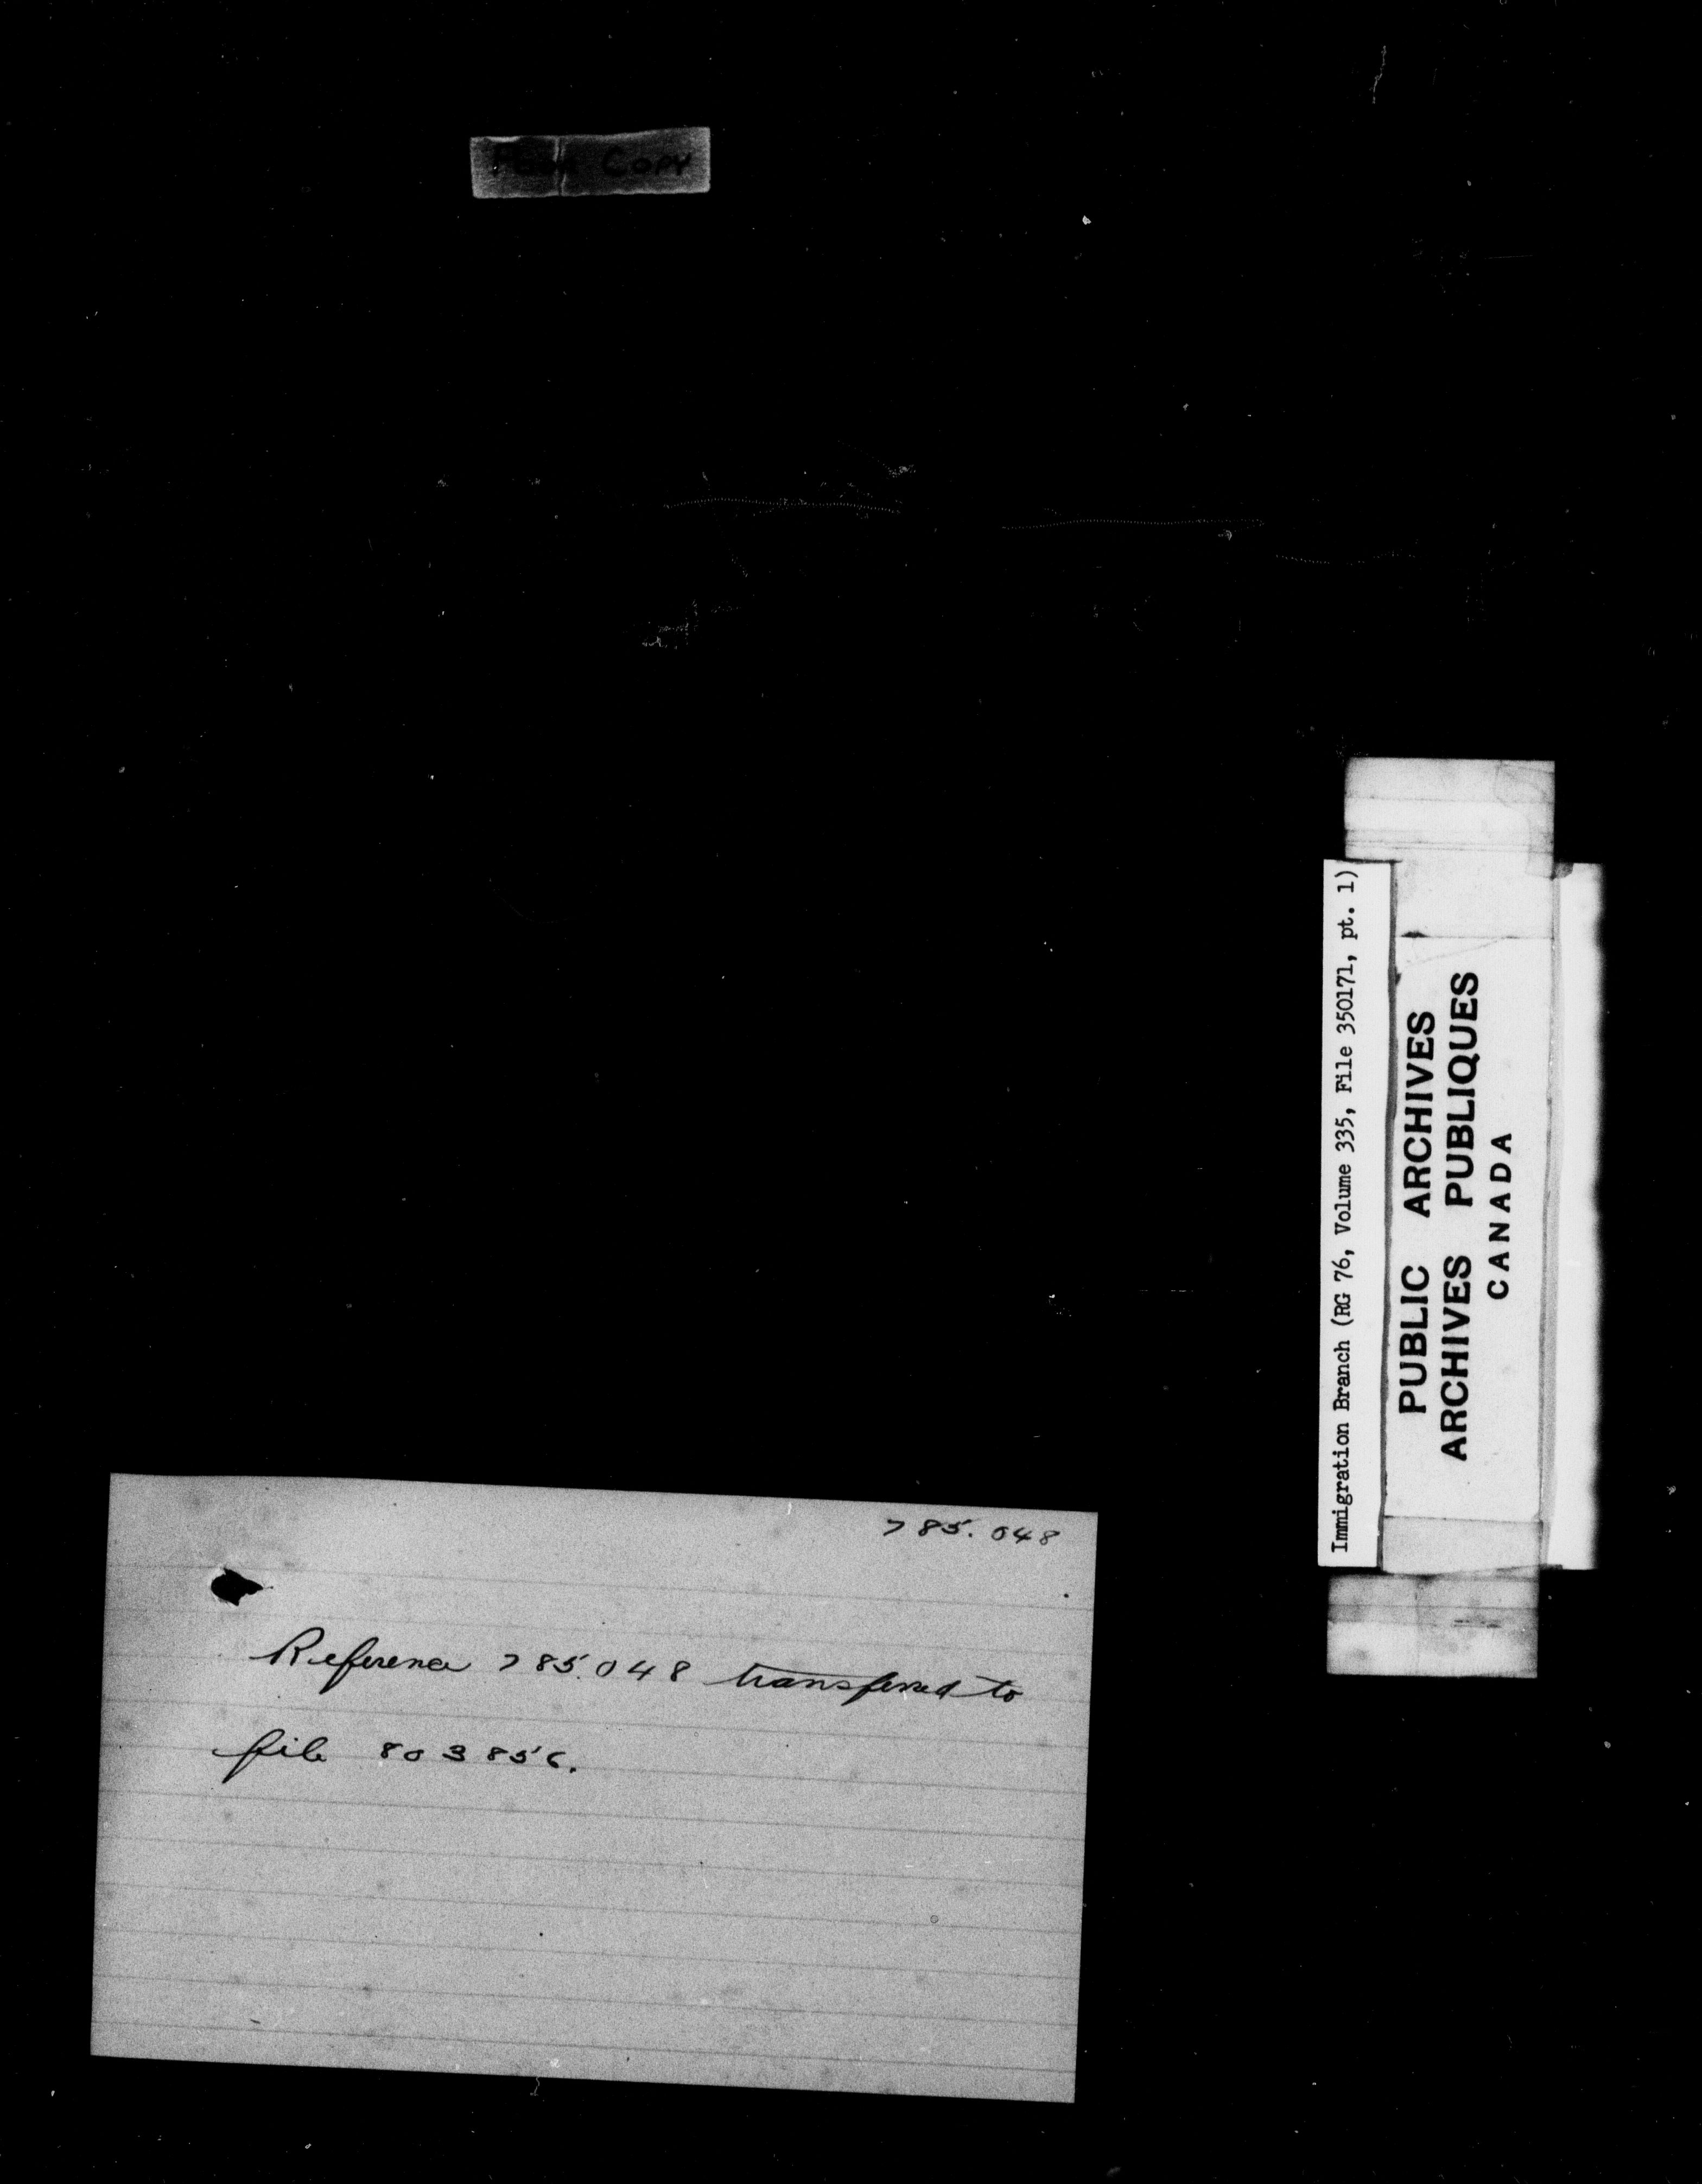 Copy
Immigration Branch (RG 76, Volume 335, File 350171, pt. 1)
PUBLIC ARCHIVES
ARCHIVES PUBLIQUES
CANADA
785.048
Reference 785.048 transfered to
file 803856.